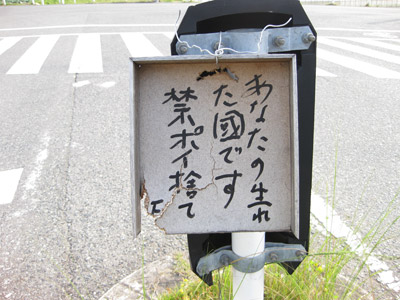 あなたの生れ
た國です
禁ポイ捨て